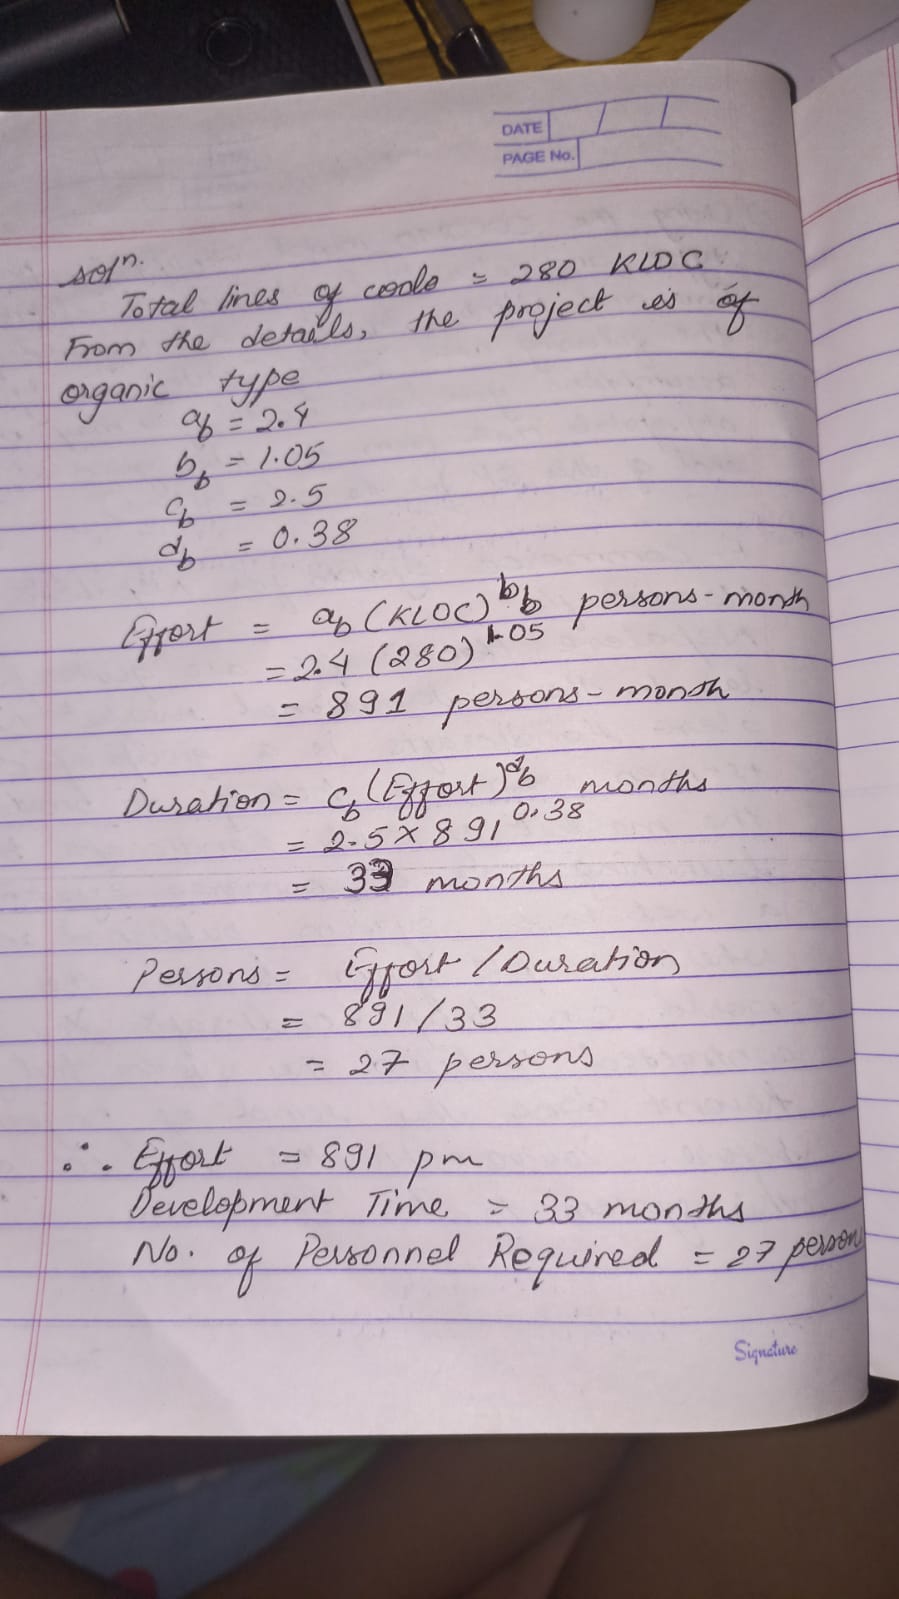 DATE
PAGE No.
soln.
Total lines of code = 280 KLOC.
From the details, the project is of
organic type
ab = 2.4
bb = 1.05
cb = 2.5
db = 0.38
Effort = ab (KLOC)^bb persons-month
= 2.4 (280)^1.05
= 891 persons-month
Duration = cb (Effort)^db months
= 2.5 × 891^0.38
= 33 months
Persons = Effort / Duration
= 891/33
= 27 persons
∴ Effort = 891 pm
Development Time = 33 months
No. of Personnel Required = 27 person
Signature